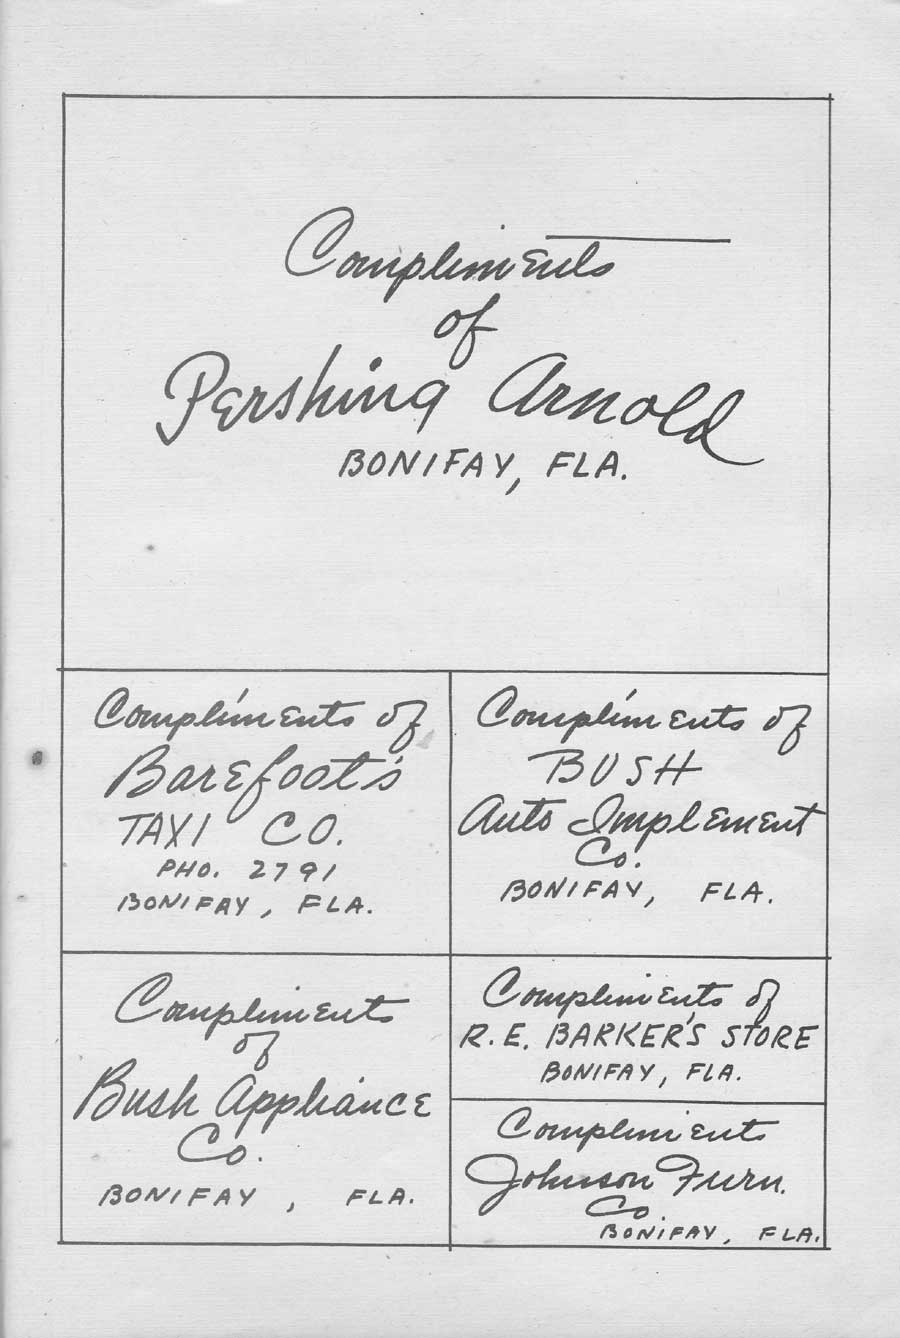 Compliments
of
Pershing Arnold
BONIFAY, FLA.
Compliments of
Barefoot's
TAXI CO.
PHO. 2791
BONIFAY, FLA.
Compliments of
BUSH
Auto Implement
Co.
BONIFAY, FLA.
Compliments
of
Bush Appliance
Co.
BONIFAY, FLA.
Compliments of
R. E. BARKER'S STORE
BONIFAY, FLA.
Compliments
Johnson Furn.
Co.
BONIFAY, FLA.